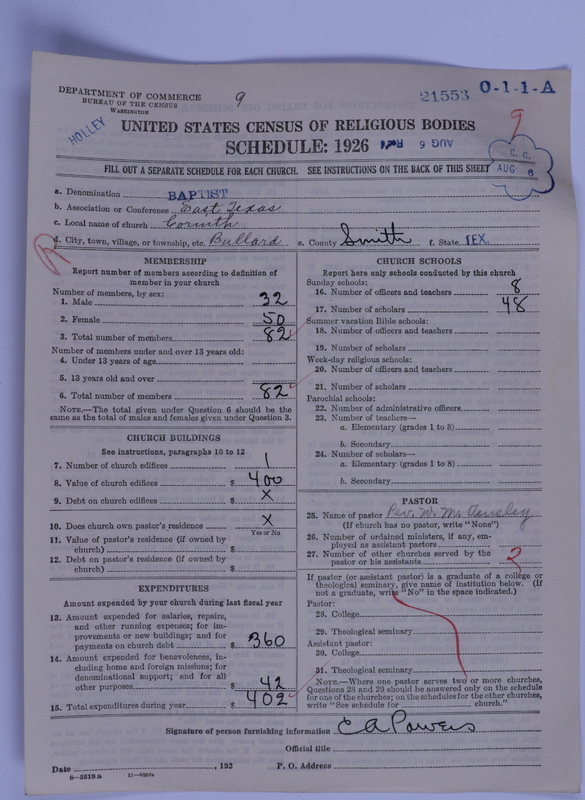 DEPARTMENT OF COMMERCE
BUREAU OF THE CENSUS
WASHINGTON
9
21553 O-1-1-A
HOLLEY
9
UNITED STATES CENSUS OF RELIGIOUS BODIES
SCHEDULE: 1926
AUG 6
C. C.
AUG 6
FILL OUT A SEPARATE SCHEDULE FOR EACH CHURCH. SEE INSTRUCTIONS ON THE BACK OF THIS SHEET
a. Denomination BAPTIST
b. Association or Conference East Texas
c. Local name of church Corinth
R
d. City, town, village, or township, etc. Bullard e. County Smith f. State TEX.
MEMBERSHIP
Report number of members according to definition of
member in your church
Number of members, by sex:
1. Male 32
2. Female 50
3. Total number of members 82
Number of members under and over 13 years old:
4. Under 13 years of age
5. 13 years old and over
6. Total number of members 82
NOTE.—The total given under Question 6 should be
same as the total of males and females given under Question 3.
CHURCH BUILDINGS
See instructions, paragraphs 10 to 12
7. Number of church edifices 1
8. Value of church edifices $ 400
9. Debt on church edifices $ X
10. Does church own pastor's residence X
Yes or No
11. Value of pastor's residence (if owned by
church) $
12. Debt on pastor's residence (if owned by
church) $
EXPENDITURES
Amount expended by your church during last fiscal year
13. Amount expended for salaries, repairs,
and other running expenses; for im-
provements or new buildings; and for
payments on church debt $ 360
14. Amount expended for benevolences, in-
cluding home and foreign missions; for
denominational support; and for all
other purposes $ 42
15. Total expenditures during year $ 402
CHURCH SCHOOLS
Report here only schools conducted by this church
Sunday schools:
16. Number of officers and teachers 8
17. Number of scholars 48
Summer vacation Bible schools:
18. Number of officers and teachers
19. Number of scholars
Week-day religious schools:
20. Number of officers and teachers
21. Number of scholars
Parochial schools:
22. Number of administrative officers
23. Number of teachers—
a. Elementary (grades 1 to 8)
b. Secondary
24. Number of scholars—
a. Elementary (grades 1 to 8)
b. Secondary
PASTOR
25. Name of pastor Rev. W. M.
(If church has no pastor, write "None")
26. Number of ordained ministers, if any, em-
ployed as assistant pastors
27. Number of other churches served by the
pastor or his assistants 2
If pastor (or assistant pastor) is a graduate of a college or
theological seminary, give name of institution below. (If
not a graduate, write "No" in the space indicated.)
Pastor:
28. College
29. Theological seminary
Assistant pastor:
30. College
31. Theological seminary
NOTE.—Where one pastor serves two or more churches,
Questions 28 and 29 should be answered only on the schedule
for one of the churches; on the schedules for the other churches,
write "See schedule for church."
Signature of person furnishing information C A Powers
Official title
Date , 192 P. O. Address
8-5518a 11-9554